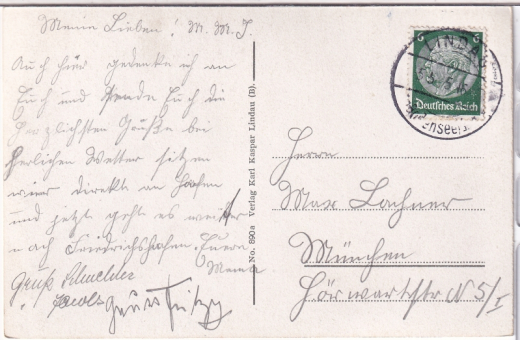 Meine Lieben! M. M. J.
Auch hier gedenke ich an
Euch und sende Euch die
herzlichsten Grüße bei
herlichen Wetter sitzen
wir direkte am Hafen
und jetzt geht es weiter
nach Friedrichshafen. Eure
Mema
Gruß
Gruss Fritz
No. 890a Verlag Karl Kaspar Lindau (B).
6
Deutsches Reich
LINDAU
Herrn
Max Lachner
München
Hörwartstr N 5/I